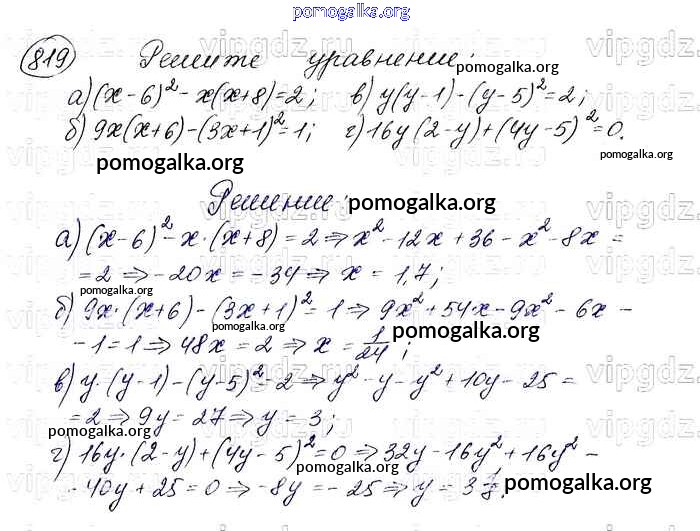 pomogalka.org
819 Решите уравнение: pomogalka.org
а) (x-6)² - x(x+8)=2; в) y(y-1)-(y-5)²=2;
б) 9x(x+6)-(3x+1)²=1; г) 16y(2-y)+(4y-5)²=0.
pomogalka.org pomogalka.org
Решение: pomogalka.org
а) (x-6)² - x·(x+8) = 2 ⇒ x² - 12x + 36 - x² - 8x =
= 2 ⇒ -20x = -34 ⇒ x = 1,7;
pomogalka.org pomogalka.org
б) 9x·(x+6) - (3x+1)² = 1 ⇒ 9x² + 54x - 9x² - 6x -
pomogalka.org pomogalka.org
- 1 = 1 ⇒ 48x = 2 ⇒ x = 1/24;
в) y·(y-1)-(y-5)² = 2 ⇒ y² - y - y² + 10y - 25 =
= 2 ⇒ 9y = 27 ⇒ y = 3;
pomogalka.org pomogalka.org
г) 16y·(2-y)+(4y-5)² = 0 ⇒ 32y - 16y² + 16y² -
pomogalka.org
- 40y + 25 = 0 ⇒ -8y = -25 ⇒ y = 3 1/8.
pomogalka.org
vipgdz.ru vipgdz.ru vipgdz.ru